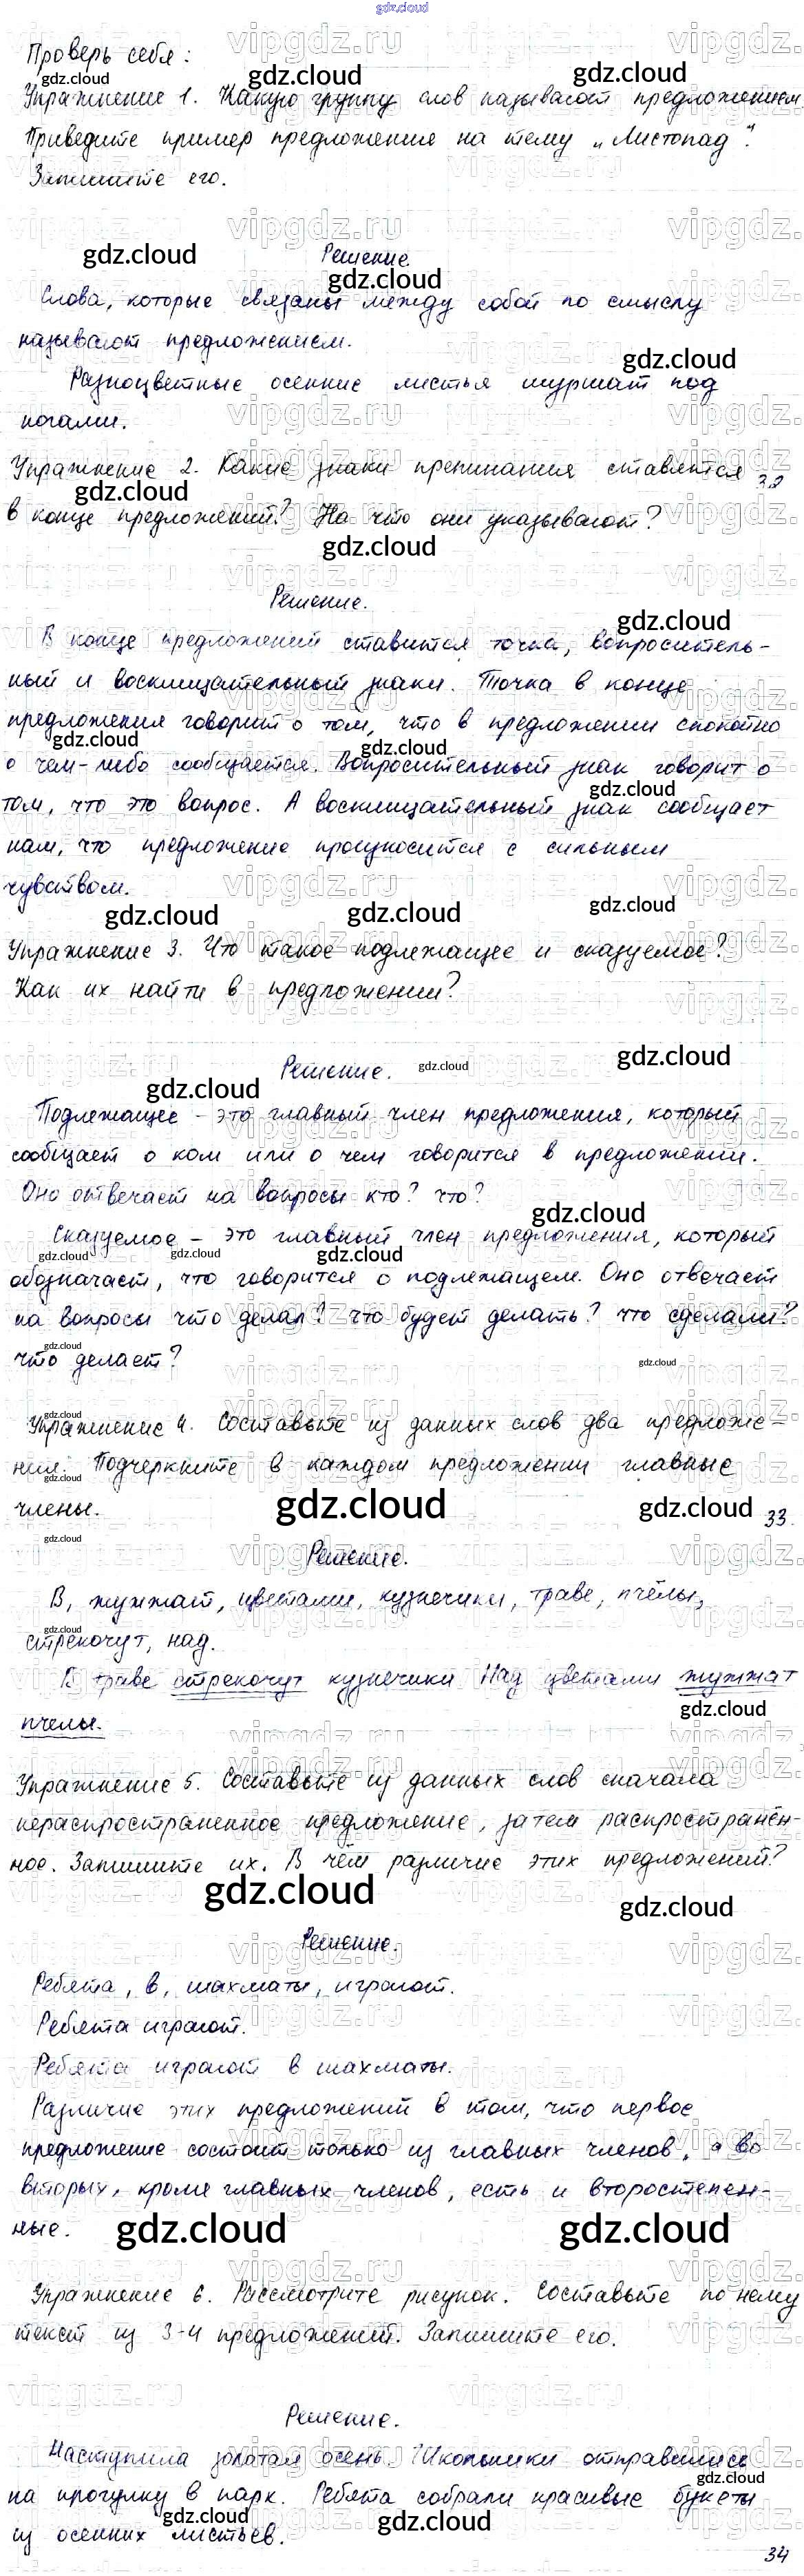 gdz.cloud
Проверь себя:
Упражнение 1. Какую группу слов называют предложением.
Приведите пример предложение на тему „Листопад".
Запишите его.
Решение
Слова, которые связаны между собой по смыслу
называют предложением.
Разноцветные осенние листья шуршат под
ногами.
Упражнение 2. Какие знаки препинания ставятся
32
в конце предложений? На что они указывают?
Решение.
В конце предложений ставится точка, вопроситель-
ный и восклицательный знаки. Точка в конце
предложения говорит о том, что в предложении спокойно
о чем-либо сообщается. Вопросительный знак говорит о
том, что это вопрос. А восклицательный знак сообщает
нам, что предложение произносится с сильным
чувством.
Упражнение 3. Что такое подлежащее и сказуемое?
Как их найти в предложении?
Решение.
Подлежащее - это главный член предложения, который
сообщает о ком или о чем говорится в предложении.
Оно отвечает на вопросы кто? что?
Сказуемое - это главный член предложения, который
обозначает, что говорится о подлежащем. Оно отвечает
на вопросы что делал? что будет делать? что сделали?
что делает?
Упражнение 4. Составьте из данных слов два предложе-
ния. Подчеркните в каждом предложении главные
члены.
33
Решение.
В, жужжат, цветами, кузнечики, траве, пчёлы,
стрекочут, над.
В траве стрекочут кузнечики Над цветами жужжат
пчелы.
Упражнение 5. Составьте из данных слов сначала
нераспространенное предложение, затем распространён-
ное. Запишите их. В чём различие этих предложений?
Решение.
Ребята, в, шахматы, играют.
Ребята играют.
Ребята играют в шахматы.
Различие этих предложений в том, что первое
предложение состоит только из главных членов, а во
вторых, кроме главных членов, есть и второстепен-
ные.
Упражнение 6. Рассмотрите рисунок. Составьте по нему
текст из 3-4 предложений. Запишите его.
Решение.
Наступила золотая осень. Школьники отправились
на прогулку в парк. Ребята собрали красивые букеты
из осенних листьев.
34